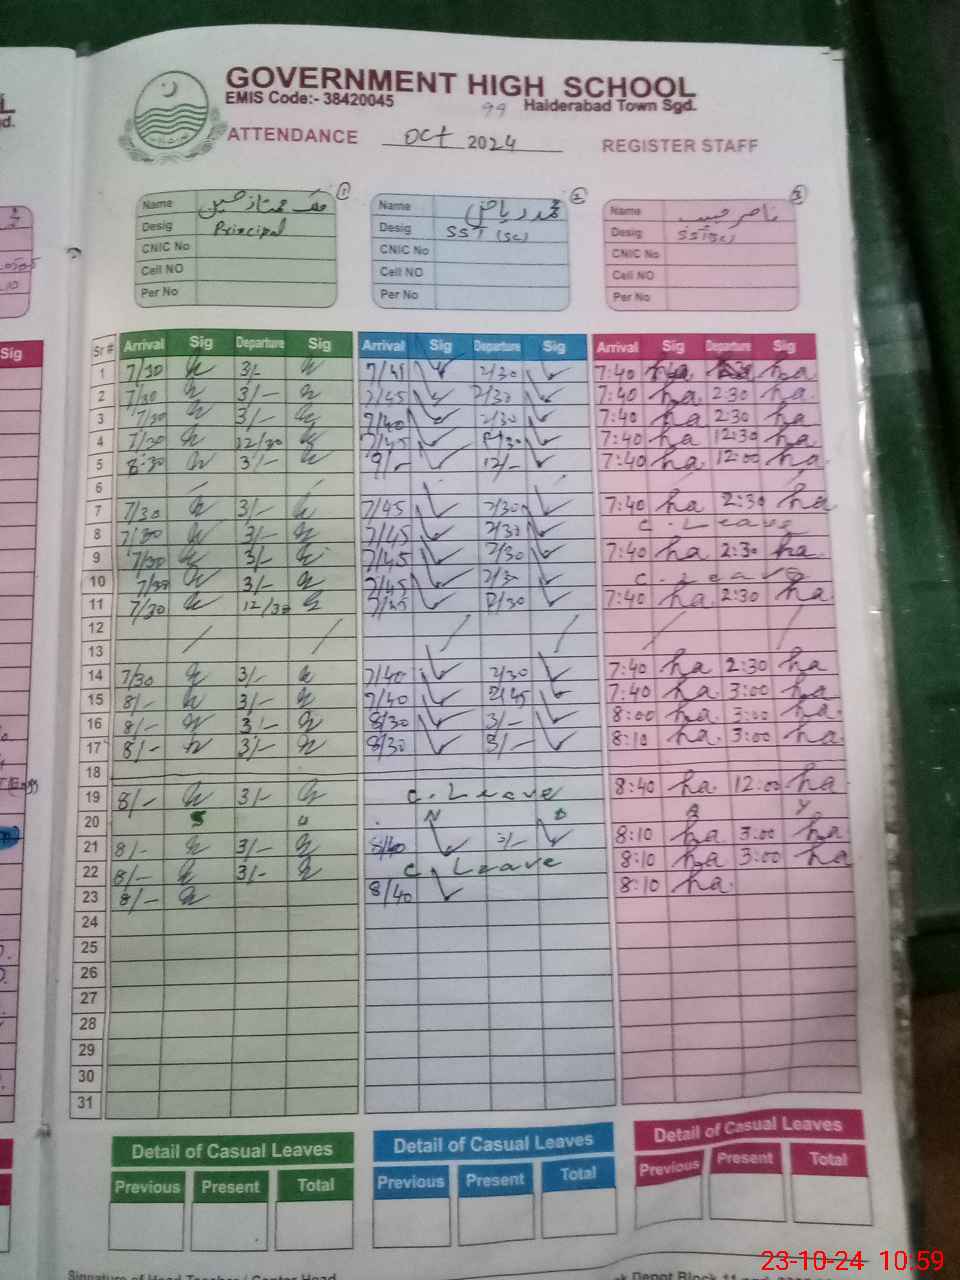 GOVERNMENT HIGH SCHOOL
EMIS Code:- 38420045 99 Haiderabad Town Sgd.
ATTENDANCE OCT 2024 REGISTER STAFF
1 2 3
Name ملک ممتاز حسین Name محمد ریاض Name ناصر حبیب
Desig Principal Desig SST (SC) Desig SST(SC)
CNIC No CNIC No CNIC No
Cell NO Cell NO Cell NO
Per No Per No Per No
Sr # Arrival Sig Departure Sig Arrival Sig Departure Sig Arrival Sig Departure Sig
1 7/30 3/- 7/45 2/30 7:40 ha ha
2 7/30 3/- 7/45 2/30 7:40 ha 2:30 ha
3 7/30 3/- 7/40 2/30 7:40 ha 2:30 ha
4 7/30 12/30 7/45 7:40 ha 12:30 ha
5 8:30 3/- 9/- 12/- 7:40 ha 12:00 ha
6
7 7/30 3/- 7/45 2/30 7:40 ha 2:30 ha
8 7/30 3/- 7/45 2/30 C. Leave
9 7/30 3/- 7/45 2/30 7:40 ha 2:30 ha
10 7/30 3/- 7/45 2/30 C. Leave
11 7/30 12/30 7:40 ha 2:30 ha
12
13
14 7/30 3/- 7/40 2/30 7:40 ha 2:30 ha
15 8/- 3/- 7/40 2/45 7:40 ha 3:00 ha
16 8/- 3/- 8/30 3/- 8:00 ha 3:00 ha
17 8/- 3/- 8/30 3/- 8:10 ha 3:00 ha
18
19 8/- 3/- C. Leave 8:40 ha 12:00 ha
20 S U N D A Y
21 8/- 3/- 8/40 3/- 8:10 ha 3:00 ha
22 8/- 3/- C. Leave 8:10 ha 3:00 ha
23 8/- 8/40 8:10 ha
24
25
26
27
28
29
30
31
Detail of Casual Leaves Detail of Casual Leaves Detail of Casual Leaves
Previous Present Total Previous Present Total Previous Present Total
23-10-24 10:59